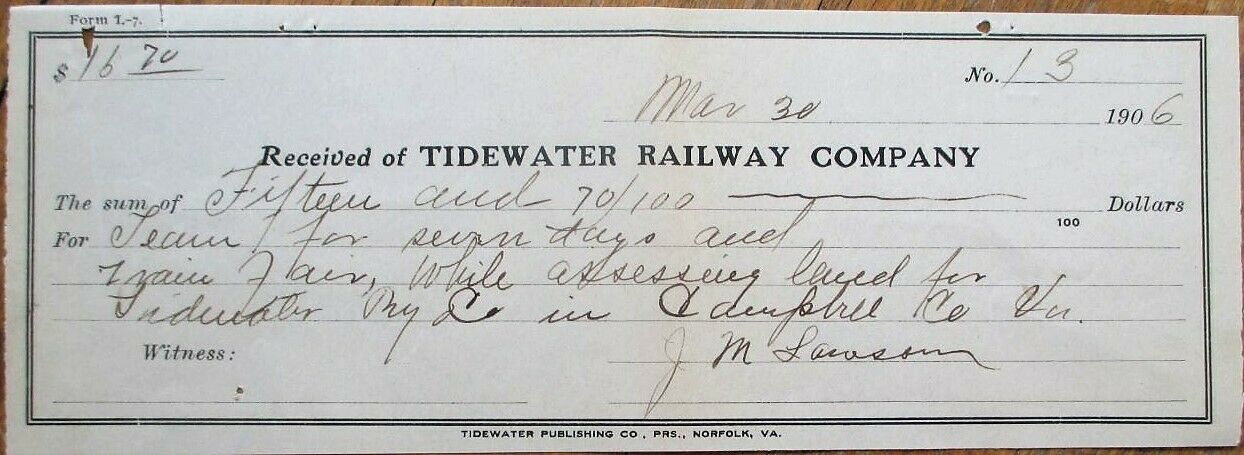 Form L-7.
$ 16 70
No. 13
Mar 30 1906
Received of TIDEWATER RAILWAY COMPANY
The sum of Fifteen and 70/100 Dollars
100
For Team for seven days and
Train Fair, While assessing land for
Tidewater Ry Co in Campbell Co Va.
Witness: J M Lawson
TIDEWATER PUBLISHING CO., PRS., NORFOLK, VA.